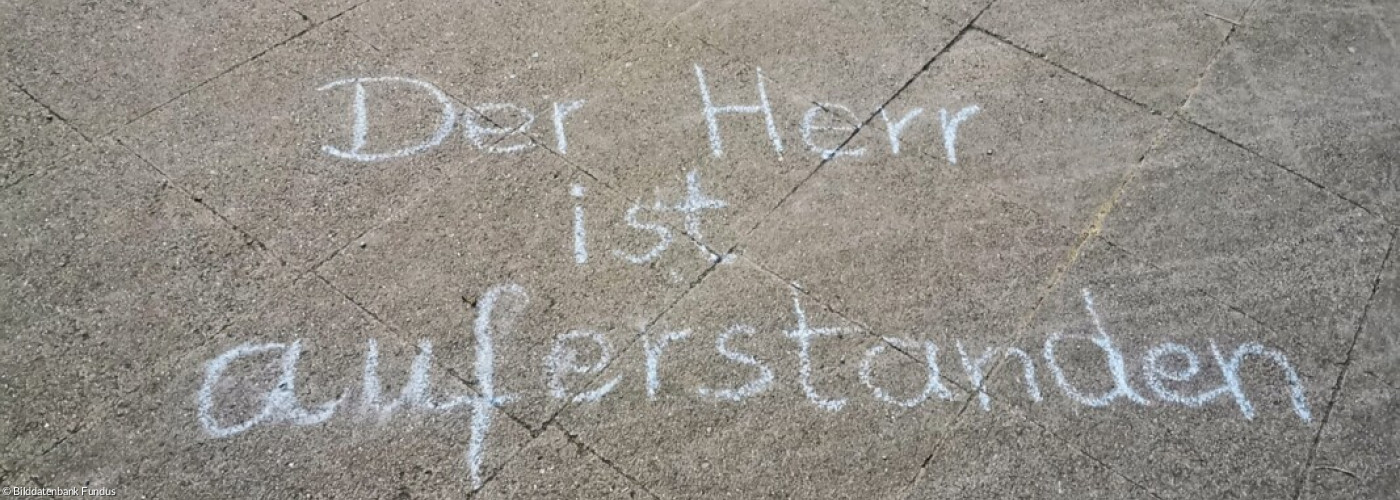 Der Herr
ist
auferstanden
© Bilddatenbank Fundus